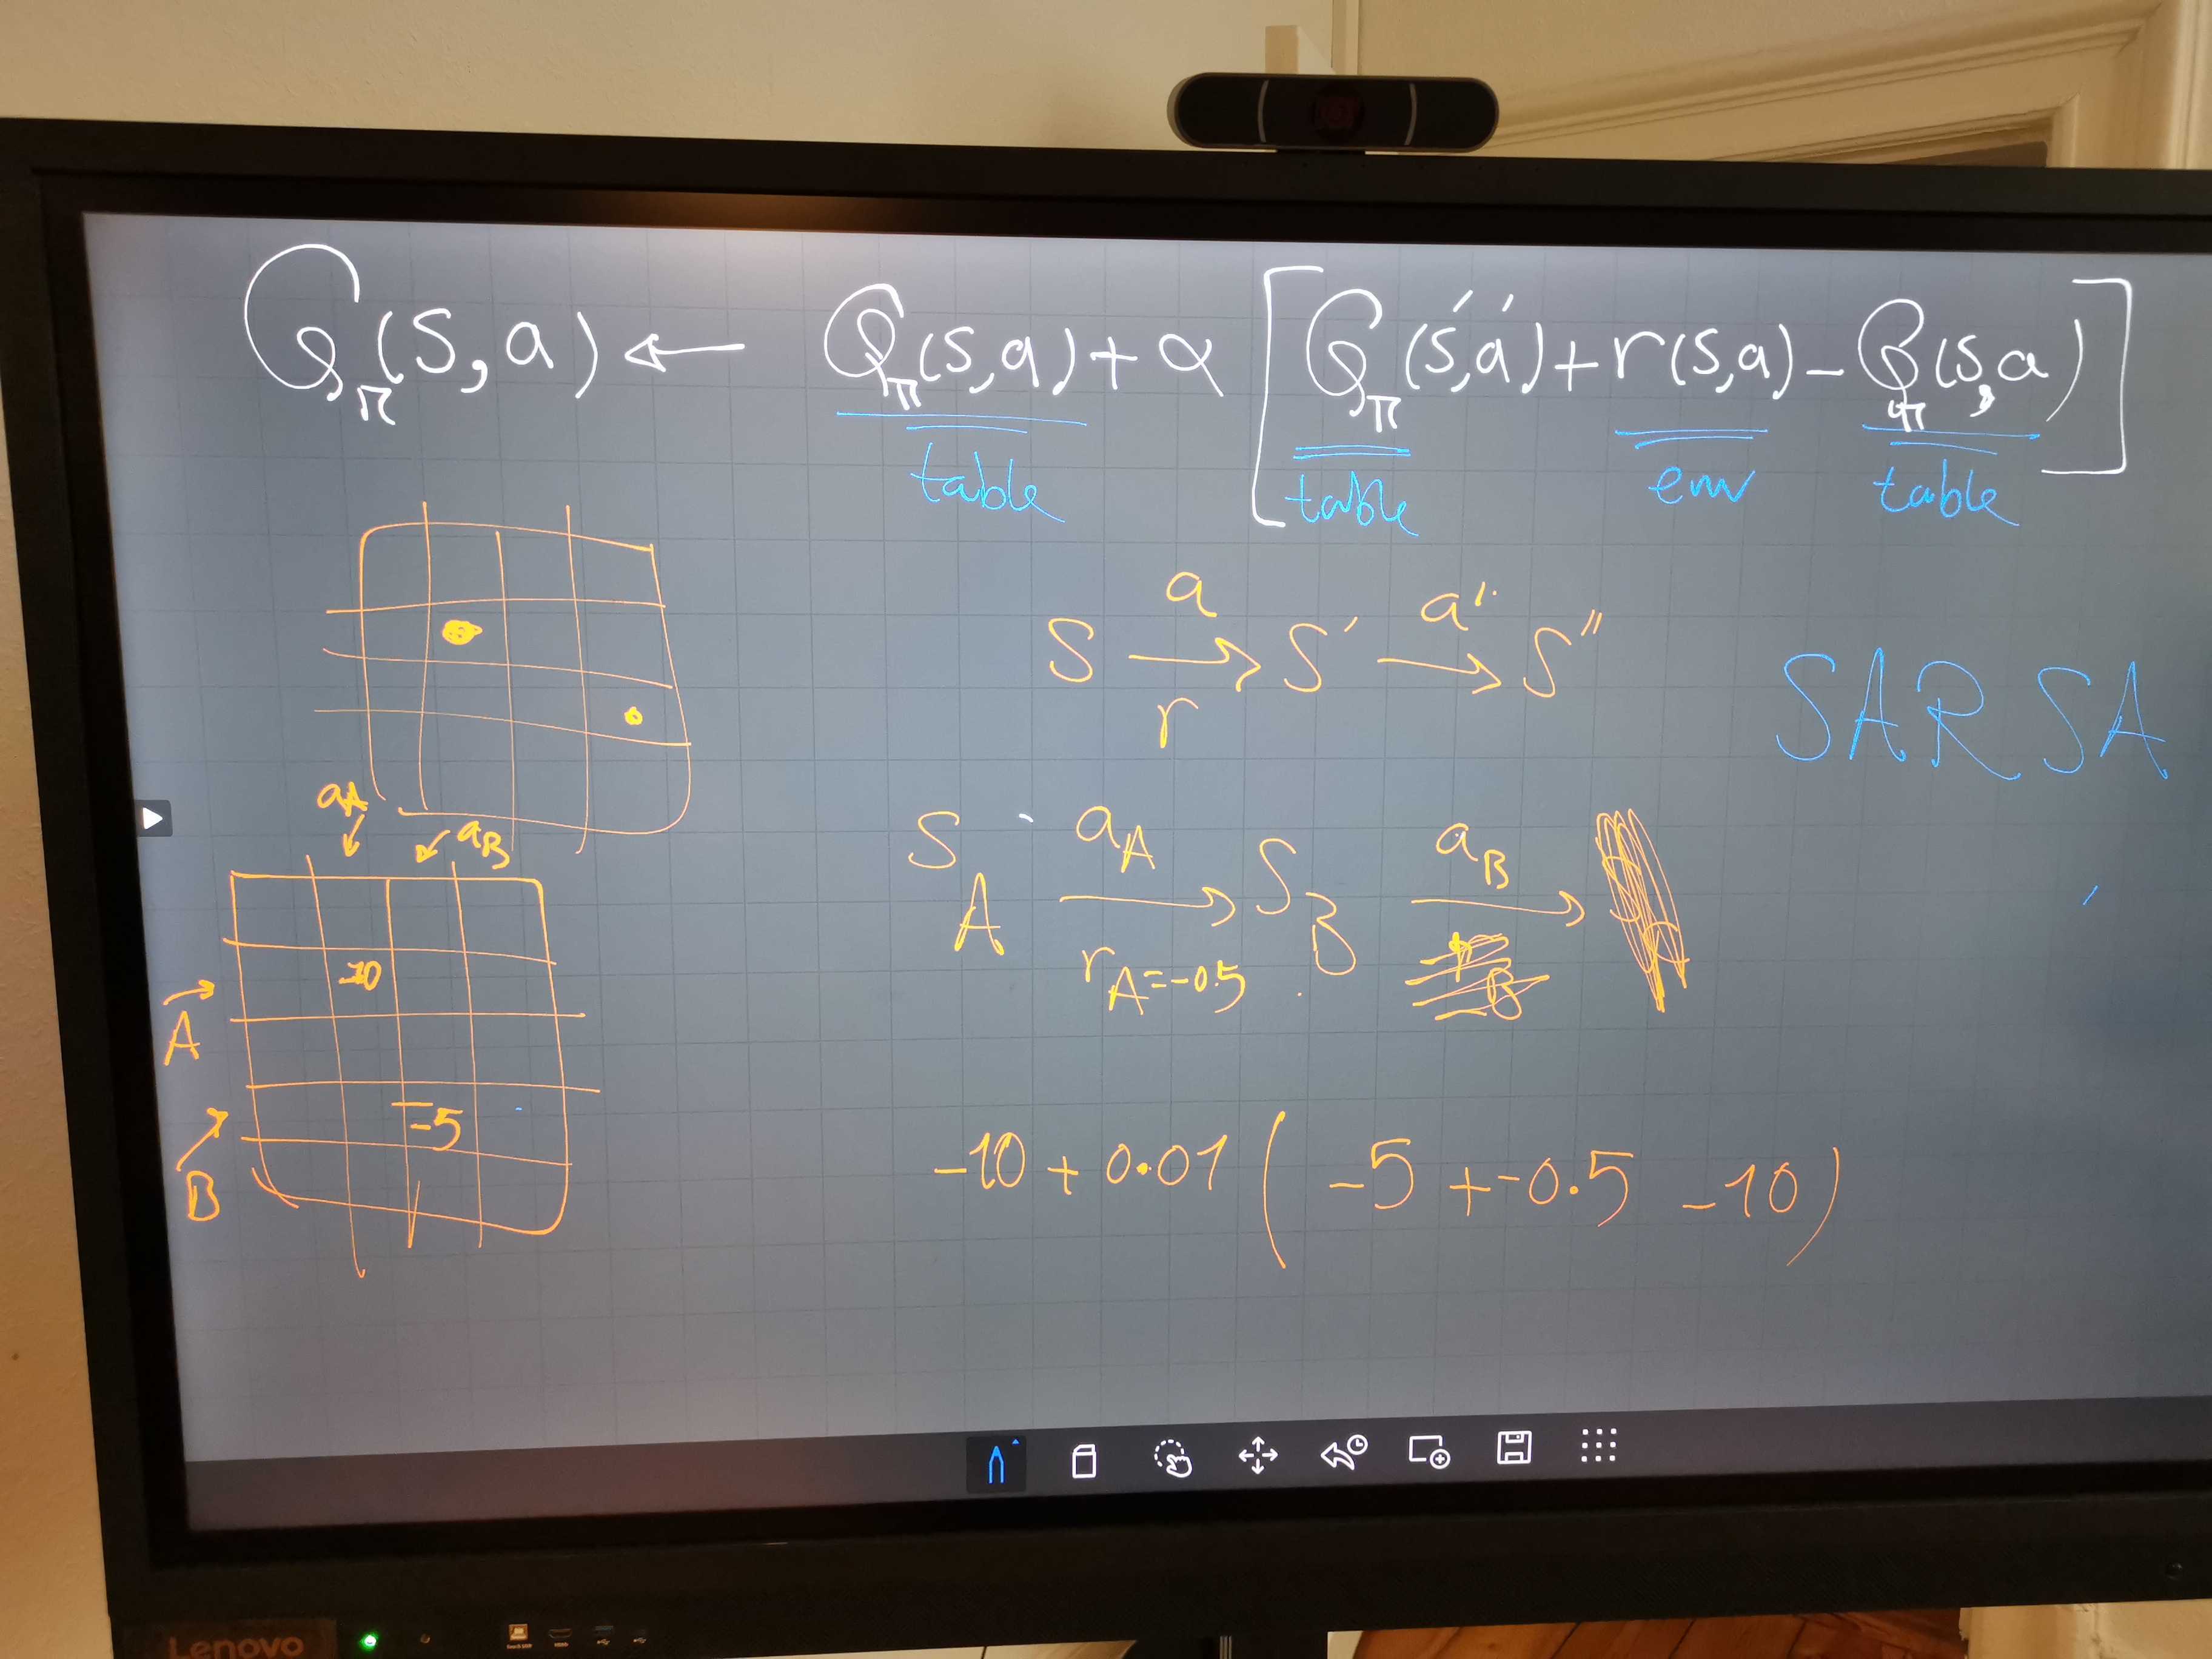 Qπ(S,a) ← Qπ(s,a) + α [Qπ(s',a') + r(s,a) - Qπ(s,a)]
table table env table
a a'
S → S' → S''
r
SARSA
aA aB
S A aA → S B aB →
rA=-0.5
-10
A
-5
B
-10 + 0.01 ( -5 + -0.5 -10)
Lenovo